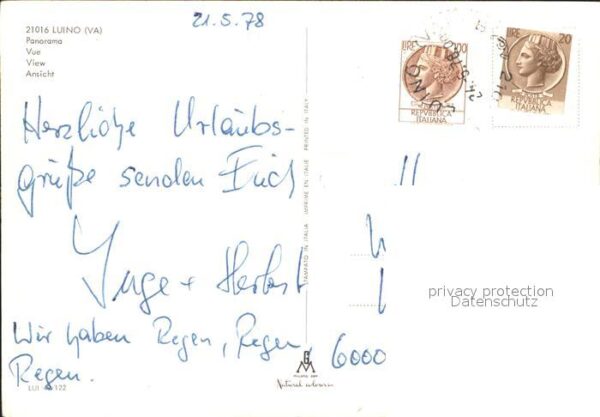 21.5.78
21016 LUINO (VA)
Panorama
Vue
View
Ansicht
Herzliche Urlaubs-
grüße senden Euch
Inge + Herbert
Wir haben Regen, Regen,
Regen.
6000
LIRE 100
REPVBBLICA
ITALIANA
LIRE 20
REPVBBLICA
ITALIANA
LUINO
STAMPATO IN ITALIA IMPRIME EN ITALIE PRINTED IN ITALY
privacy protection
Datenschutz
Natural colour